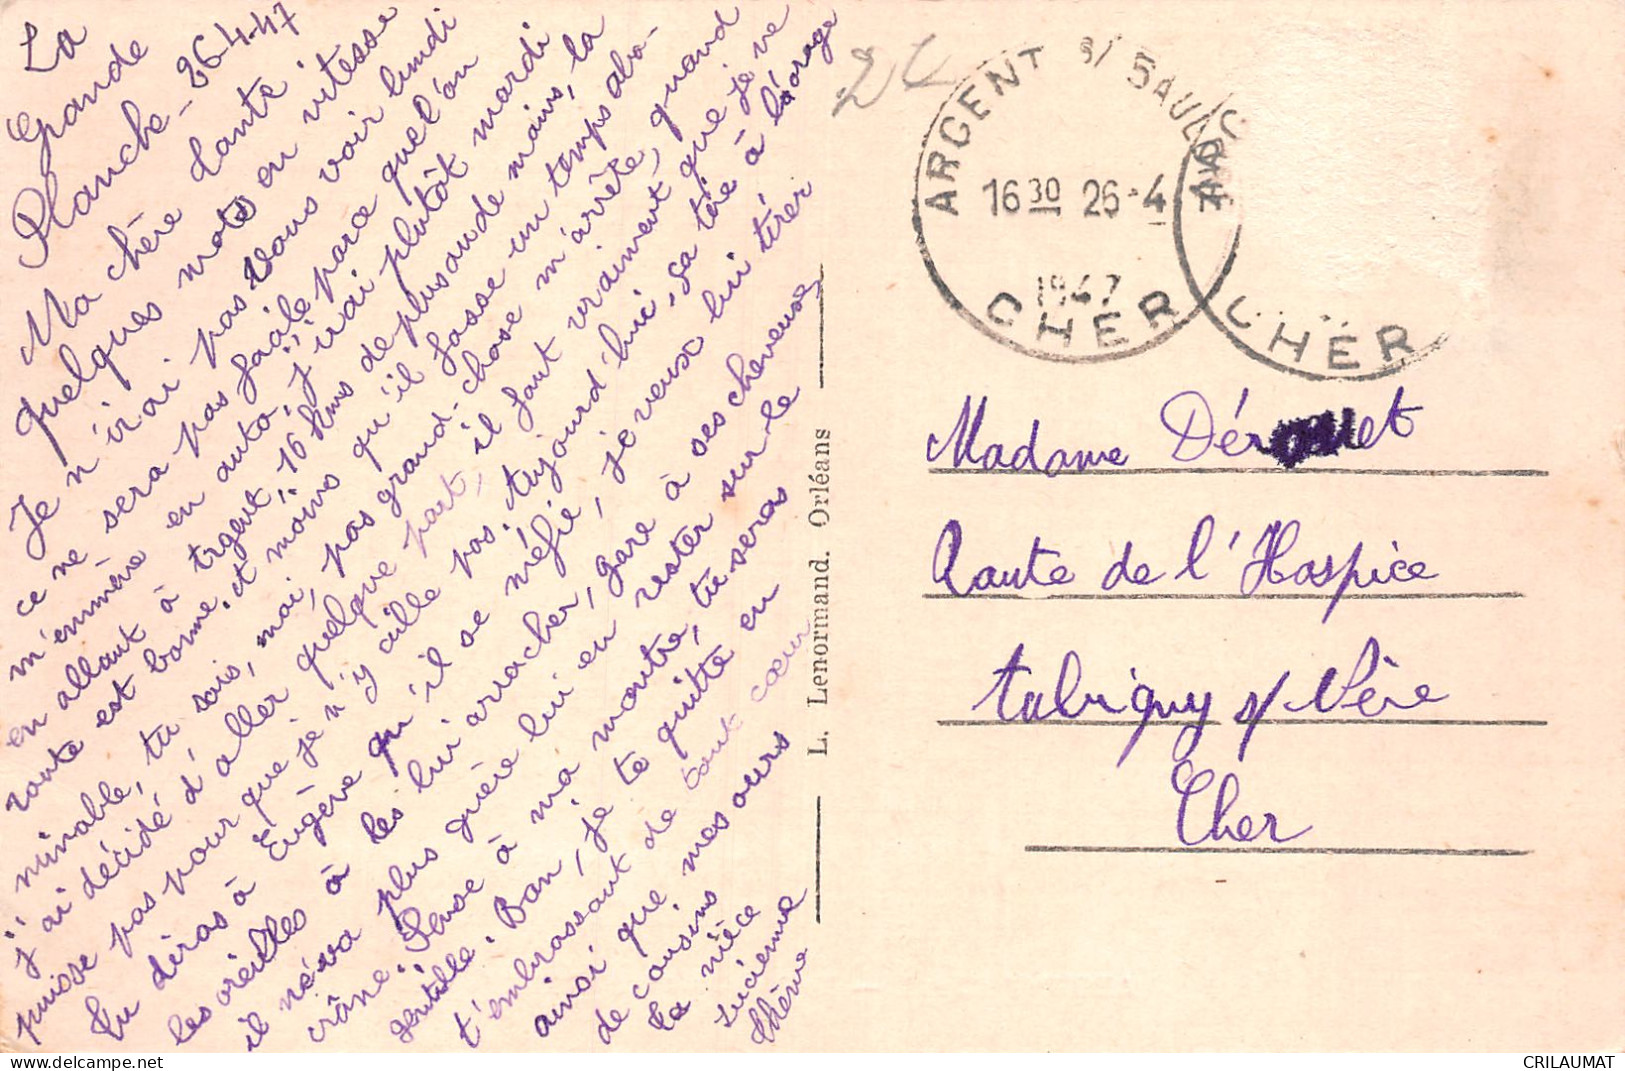 La
Grande
Planche - 26-4-47
Ma chère tante
quelques mots en vitesse
Je n'irai pas vous voir lundi
ce ne sera pas facile parce que l'on
m'emmène en auto, j'irai plutôt mardi
en allant à Argent, 16 kms de plus ou de moins, la
route est bonne, et moins qu'il fasse un temps abo-
minable, tu sais, moi, pas grand-chose m'arrête, quand
j'ai décidé d'aller quelque part, il faut vraiment que je ne
puisse pas pour que je n'y aille pas, aujourd'hui, sa tété à l'orage
Tu diras à Eugène qu'il se méfie, je veux lui tirer
les oreilles à les lui arracher, gare à ses cheveux
il ne va plus guère lui en rester sur le
crâne. Pense à ma montre, tu seras
gentille. Bon, je te quitte en
t'embrassant de tout cœur
ainsi que mes ours
de cousins
Ta nièce
Lucienne
Thème
L. Lenormand. Orléans
2C
ARGENT S/ SAULD
16 30 26-4
1947
CHER
AR
CHER
Madame Dérouet
Route de l'Hospice
Aubigny s/ Nère
Cher
www.delcampe.net
CRILAUMAT